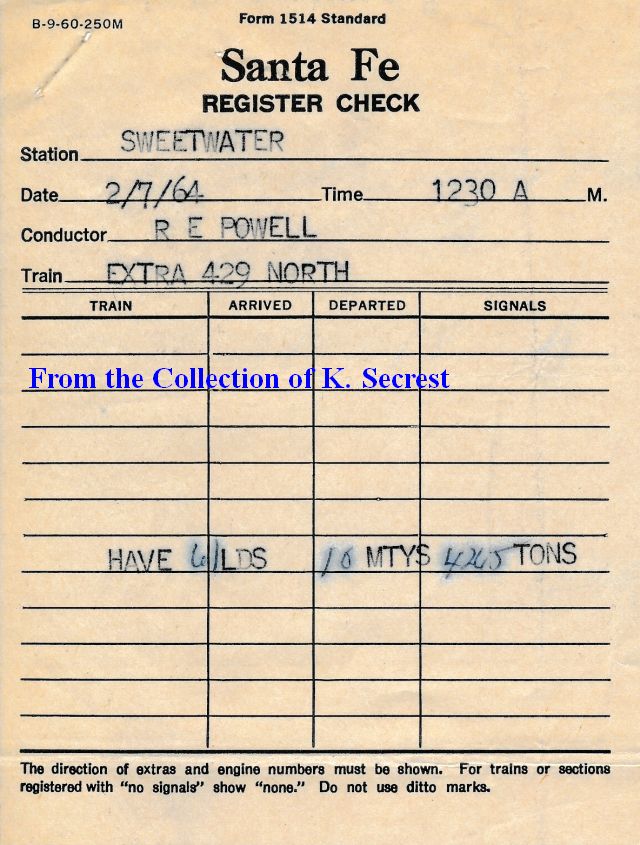 B-9-60-250M
Form 1514 Standard
Santa Fe
REGISTER CHECK
Station SWEETWATER
Date 2/7/64 Time 1230 A M.
Conductor R E POWELL
Train EXTRA 429 NORTH
TRAIN ARRIVED DEPARTED SIGNALS
From the Collection of K. Secrest
HAVE 61 LDS 10 MTYS 4265 TONS
The direction of extras and engine numbers must be shown. For trains or sections
registered with "no signals" show "none." Do not use ditto marks.